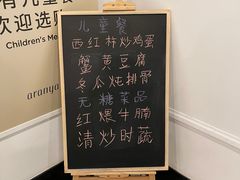 有儿童餐
欢迎选
Children's Me
aranya
儿童餐
西红柿炒鸡蛋
蟹黄豆腐
冬瓜炖排骨
无糖菜品
红煨牛腩
清炒时蔬